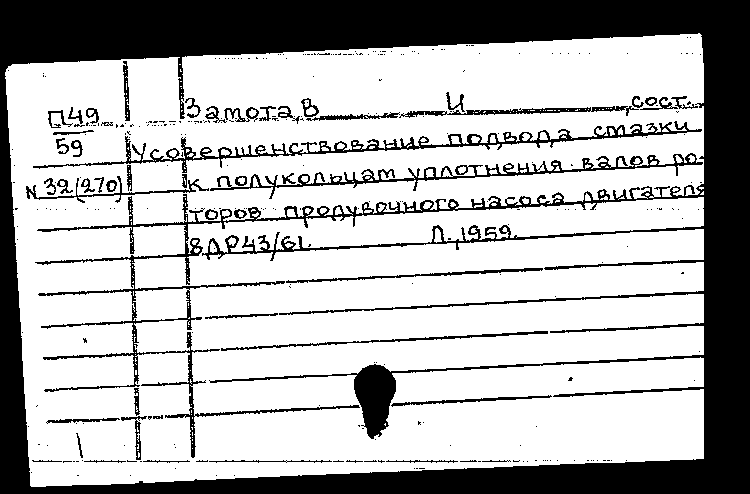 П49
59
N 32(270)
Замота, В И , сост.
Усовершенствование подвода смазки
к полукольцам уплотнения валов ро-
торов продувочного насоса двигателя
8ДР43/61 Л., 1959